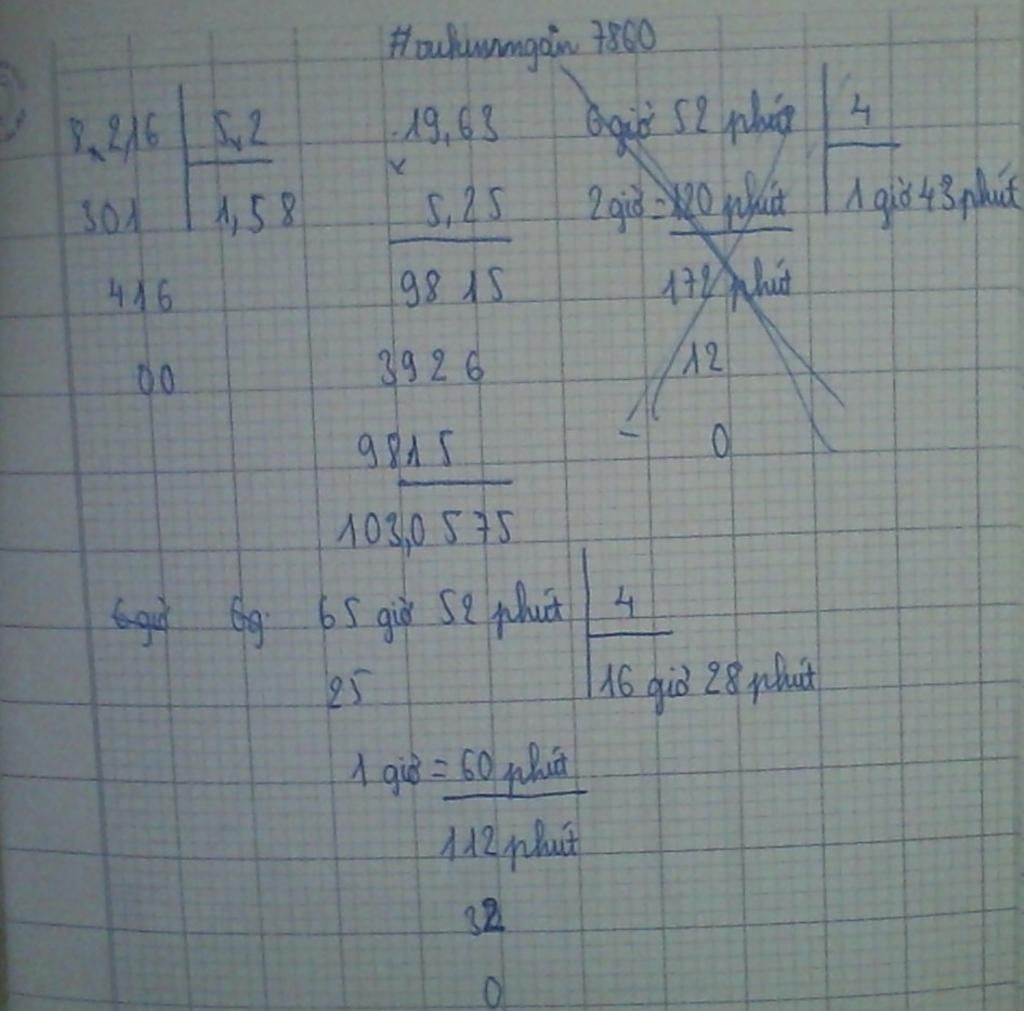 #auhunmngân 7860
8,216 5,2
301 1,58
416
00
19,63
×
5,25
9815
3926
9815
103,0575
6 giờ 52 phút 4
2 giờ = 120 phút 1 giờ 43 phút
172 phút
12
0
6 giờ 6g 65 giờ 52 phút 4
25 16 giờ 28 phút
1 giờ = 60 phút
112 phút
32
0